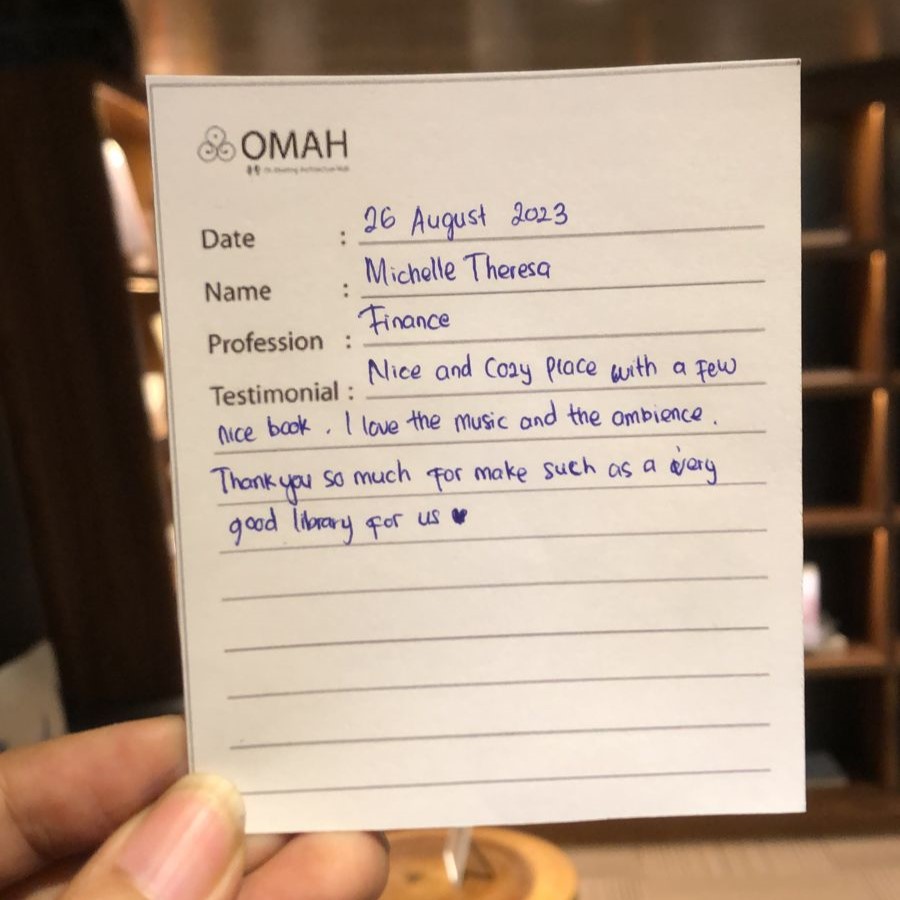 OMAH
Date : 26 August 2023
Name : Michelle Theresa
Profession : Finance
Testimonial : Nice and Cozy place with a few
nice book . I love the music and the ambience .
Thank you so much for make such as a very
good library for us ♥